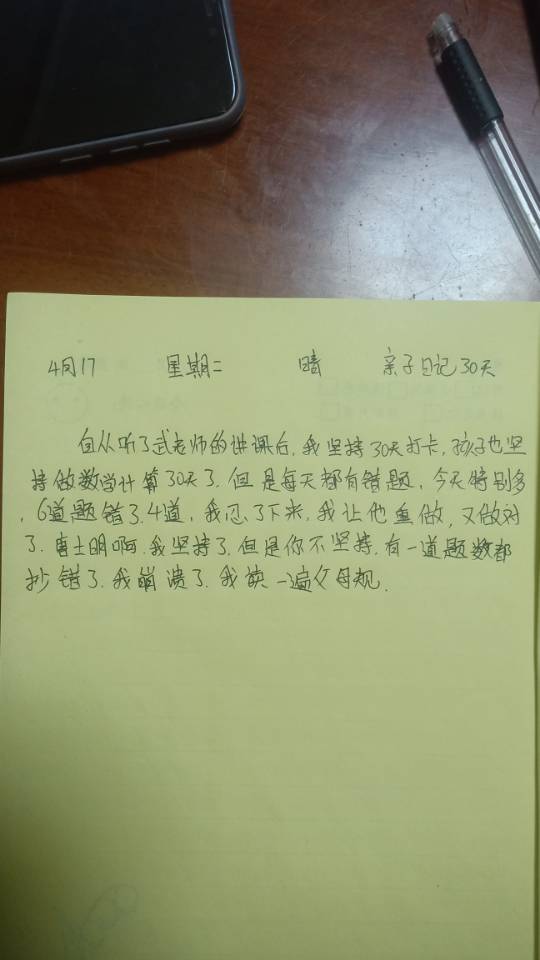 4月17 星期二 晴 亲子日记30天
自从听了武老师的讲课后,我坚持30天打卡,孩子也坚
持做数学计算30天了.但是每天都有错题,今天特别多
,6道题错了4道,我忍了下来,我让他重做,又做对
了.啊,我坚持了.但是你不坚持.有一道题数都
抄错了.我崩溃了.我读一遍父母规.